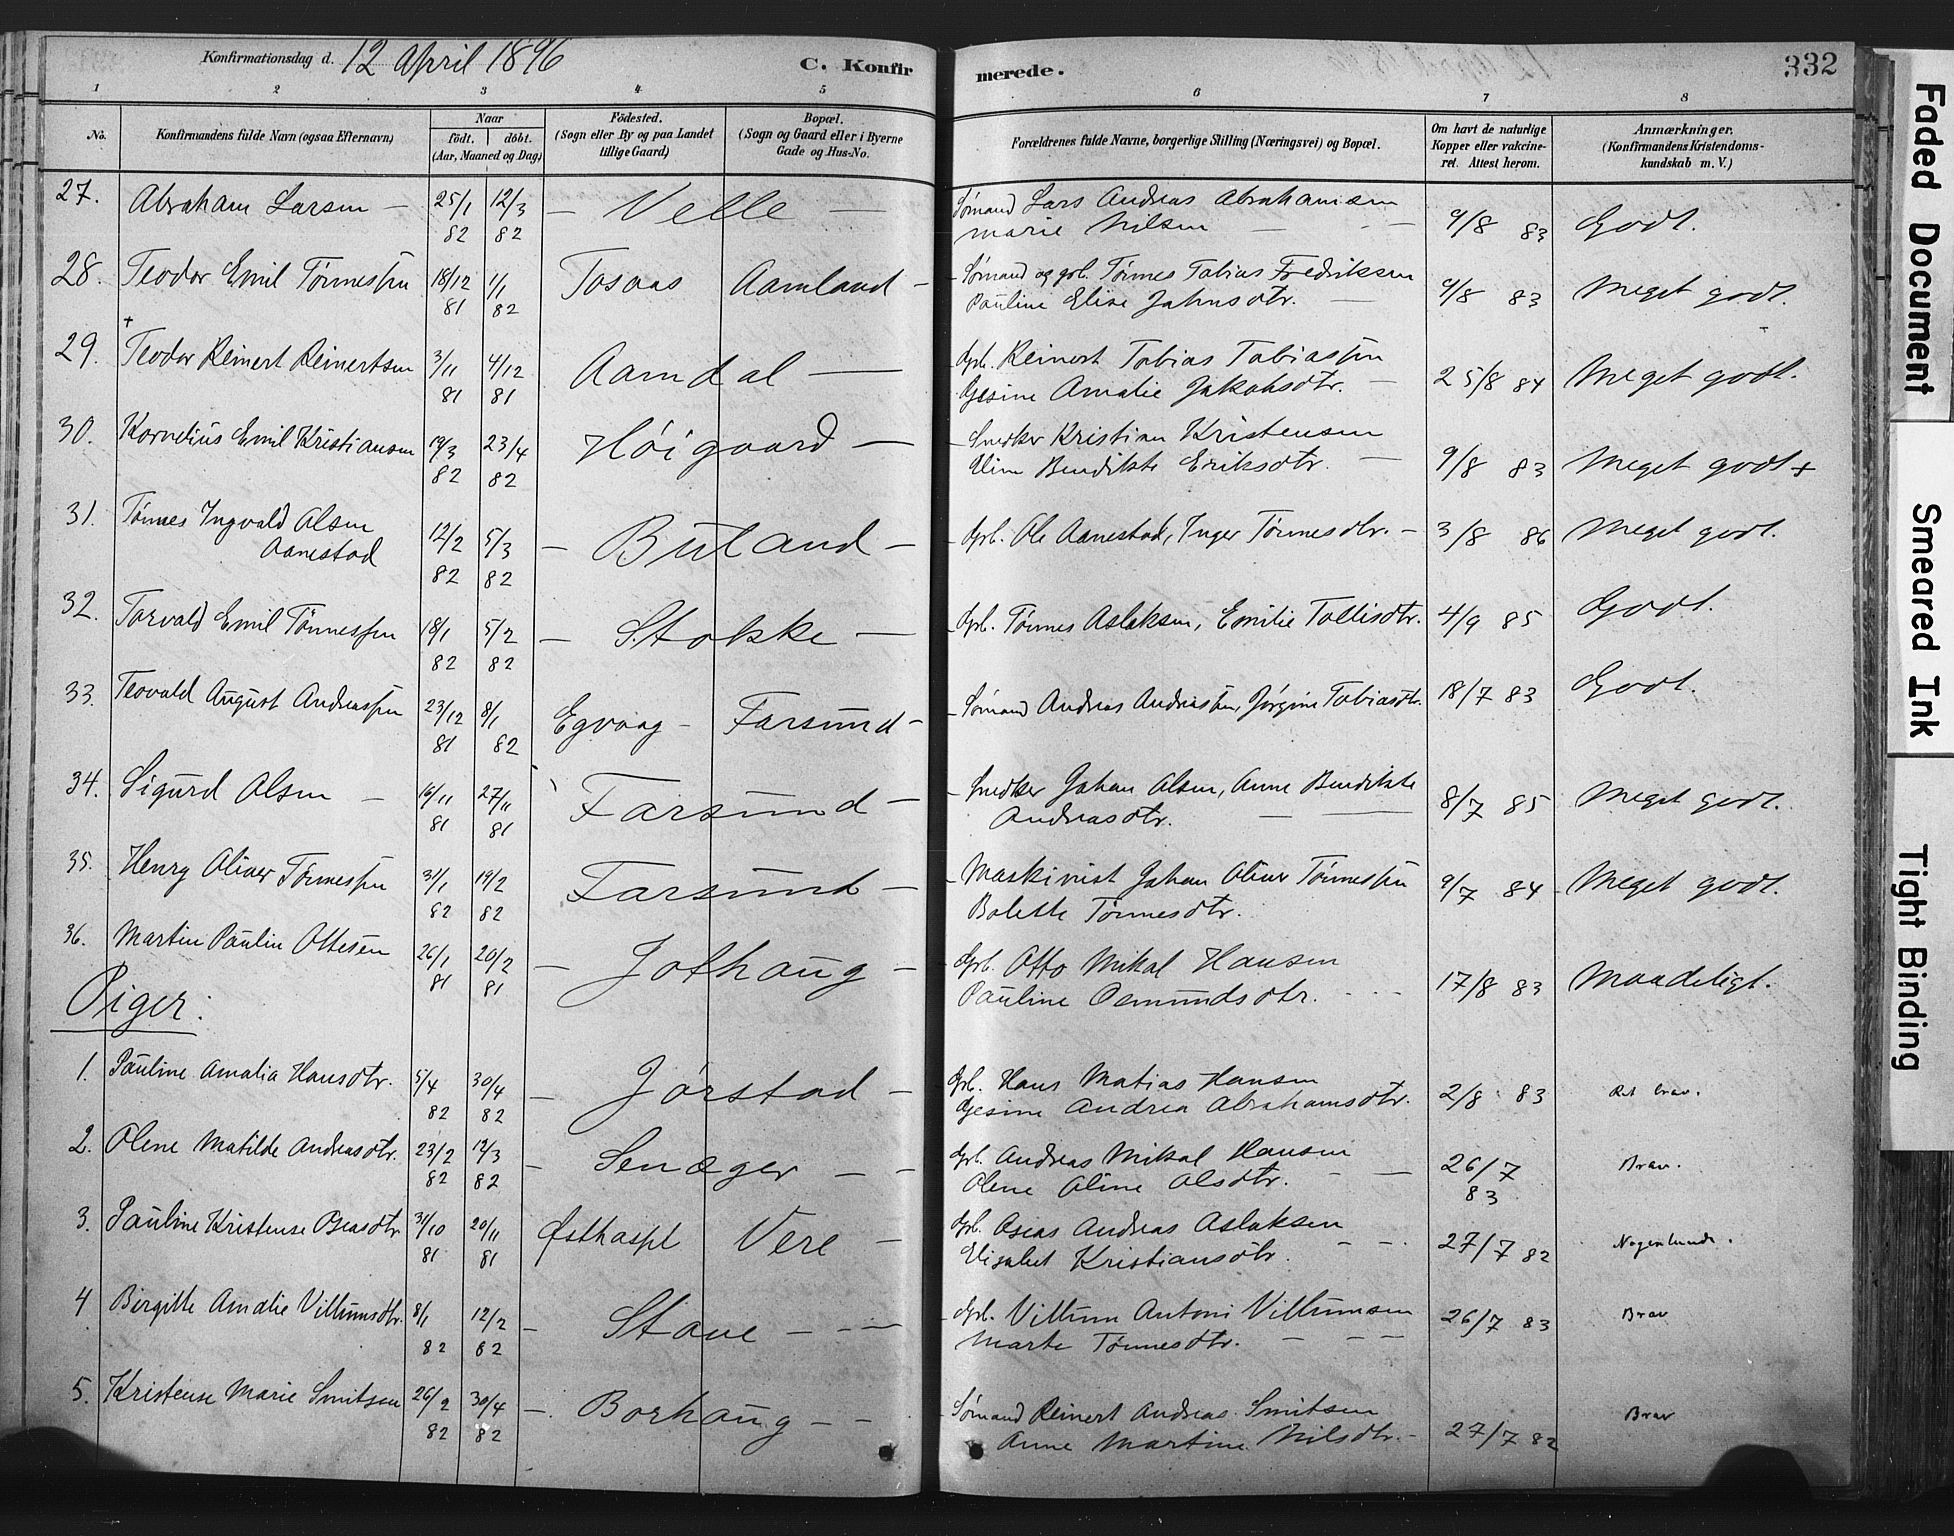 Konfirmationsdag d. 12 April 1896 C. Konfirmerede. 332
1 2 3 4 5 6 7 8
No. Konfirmandens fulde Navn (ogsaa Efternavn) Naar født. døbt. (Aar, Maaned og Dag) Fødested. (Sogn eller By og paa Landet tillige Gaard) Bopæl. (Sogn og Gaard eller i Byerne Gade og Hus-No. Forældrenes fulde Navne, borgerlige Stilling (Næringsvei) og Bopæl. Om havt de naturlige Kopper eller vakcineret. Attest herom. Anmærkninger. (Konfirmandens Kristendomskundskab m. V.)
27. Abraham Larsen – 25/1 82 12/3 82 – Velle – Sømand Lars Andreas Abrahamsen
Marie Nilsen – 9/8 83 Godt.
28. Teodor Emil Tønnessen 18/12 81 1/1 82 Tosaas Aamland – Sømand og grb. Tønnes Tobias Fredriksen
Pauline Elise Jahnsdtr. – 9/8 83 Meget godt.
29. Teodor Reinert Reinertsen 3/11 81 4/12 81 Aamdal – Grb. Reinert Tobias Tobiassen
Gesine Amalie Jakobsdtr. – 25/8 84 Meget godt.
30. Kornelius Emil Kristiansen 19/3 82 23/4 82 Høigaard – Snedker Kristian Kristensen
Elim Bendikte Eriksdtr. – 9/8 83 Meget godt +
31. Tønnes Ingvald Olsen
Aanestad 12/2 82 5/3 82 – Buland – Grb. Ole Aanestad, Inger Tønnesdtr. – 3/8 86 Meget godt.
32. Torvald Emil Tønnessen 18/1 82 5/2 82 – Stokke – Grb. Tønnes Aslaksen, Emilie Tollisdtr. 4/9 85 Godt.
33. Teovald August Andreassen 23/12 81 8/1 82 Egvaag – Farsund – Sømand Andreas Andreassen, Jørgine Tobiasdtr. 18/7 83 Godt.
34. Sigurd Olsen – 16/11 81 27/11 81 Farsund – Snedker Johan Olsen, Anne Bendikte
Andreasdtr. – 8/7 85 Meget godt.
35. Henry Oliver Tønnessen 31/1 82 19/2 82 Farsund – Maskinist Johan Oliver Tønnessen
Bolette Tønnesdtr. 9/7 84 – Meget godt.
36. Martin Paulin Ottesen 26/1 81 20/2 81 – Jothaug – Grb. Otto Mikal Hansen
Pauline Osmundsdtr. 17/8 83 Maadeligt.
Piger:
1. Pauline Amalia Hansdtr. 5/4 82 30/4 82 – Jørstad – Grb. Hans Matias Hansen
Gesine Andrea Abrahamsdtr. 2/8 83 Ret brav.
2. Olene Matilde Andreasdtr. 23/2 82 12/3 82 – Senæger – Grb. Andreas Mikal Hansen
Olene Oline Olsdtr. – 26/7 83 Brav.
3. Pauline Kristense Oseasdtr 31/10 81 20/11 81 Østhaspl Vere – Grb. Oseas Andreas Aslaksen
Elisabet Kristiansdtr. 27/7 82 Nogenlunde.
4 Birgitte Amalie Villumsdtr. 8/1 82 12/2 82 – Stave – Grb. Villum Antoni Villumsen
Marte Tønnesdtr. – 26/7 83 Brav
5. Kristense Marie Smitsen 26/2 82 30/4 82 – Borhaug – Sømand Reinert Andreas Smitsen
Anne Martine Nilsdtr. – 27/7 82 Brav
Faded Document
Smeared Ink
Tight Binding